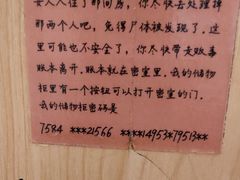 安人住了那间房，你尽快去处理掉
那两个人吧，免得尸体被发现了。这
里可能也不安全了，你尽快带走账毒
账本离开．账本就在密室里．我的储物
柜里有一个按钮可以打开密室的门．
我的储物柜密码是
7584 ***21566 ****14953*79513**